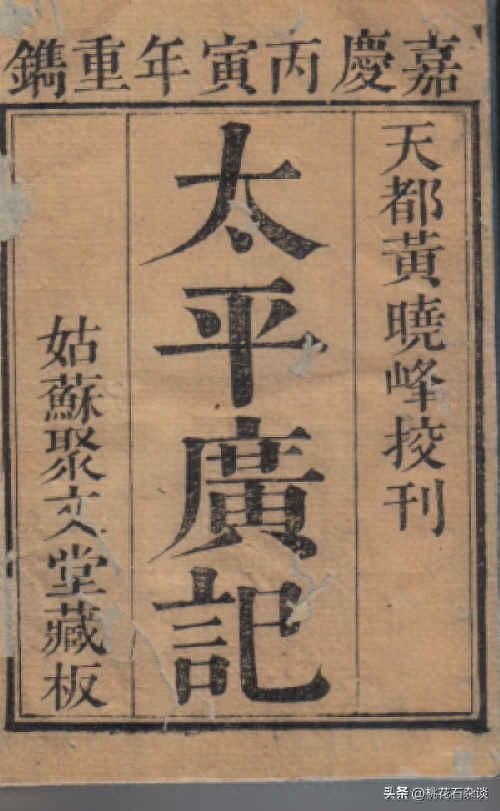 嘉慶丙寅年重鐫
天都黃曉峰挍刊
太平廣記
姑蘇聚文堂藏板
头条 @桃花石杂谈